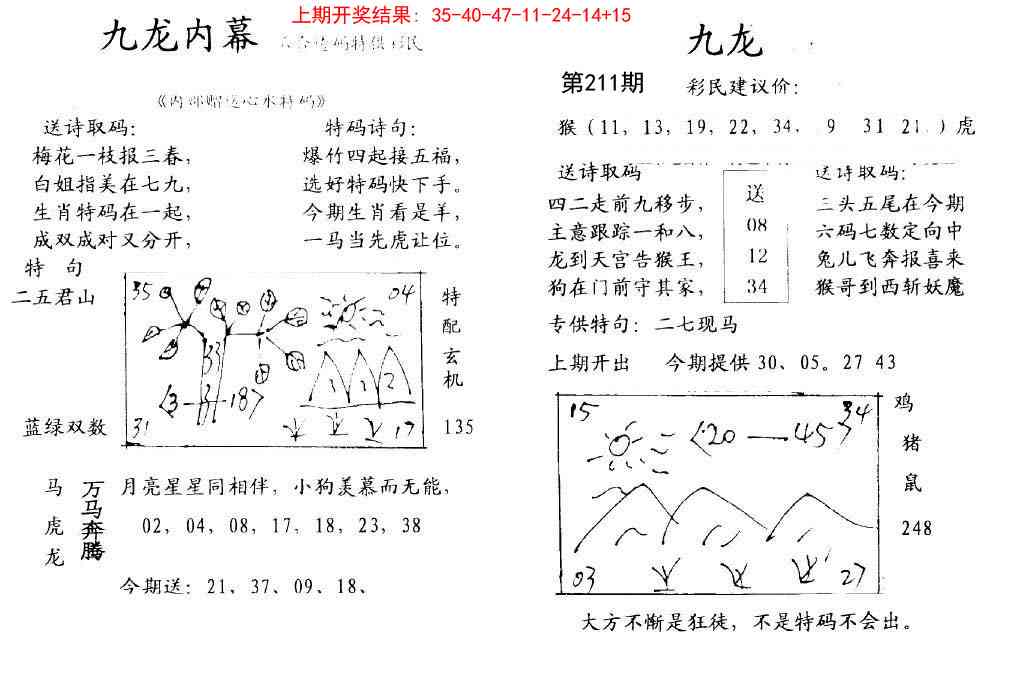 上期开奖结果：35-40-47-11-24-14+15
九龙内幕
送诗取码：
梅花一枝报三春，
白姐指美在七九，
生肖特码在一起，
成双成对又分开，
特码诗句：
爆竹四起接五福，
选好特码快下手。
今期生肖看是羊，
一马当先虎让位。
特 句
二五君山
蓝绿双数
35
04
33
1 1 2
〈3—3—18〉
31
17
特配玄机
135
马虎龙
万马奔腾
月亮星星同相伴，小狗羡慕而无能，
02，04，08，17，18，23，38
今期送：21、37、09、18、
九龙
第211期
彩民建议价：
猴（11，13，19，22，34， 9 31 21 ）虎
送诗取码
四二走前九移步，
主意跟踪一和八，
龙到天宫告猴王，
狗在门前守其家，
送
08
12
34
送诗取码：
三头五尾在今期
六码七数定向中
兔儿飞奔报喜来
猴哥到西斩妖魔
专供特句：二七现马
上期开出 今期提供 30、05。27 43
15
34
〈20—45〉
03
27
鸡
猪
鼠
248
大方不惭是狂徒，不是特码不会出。